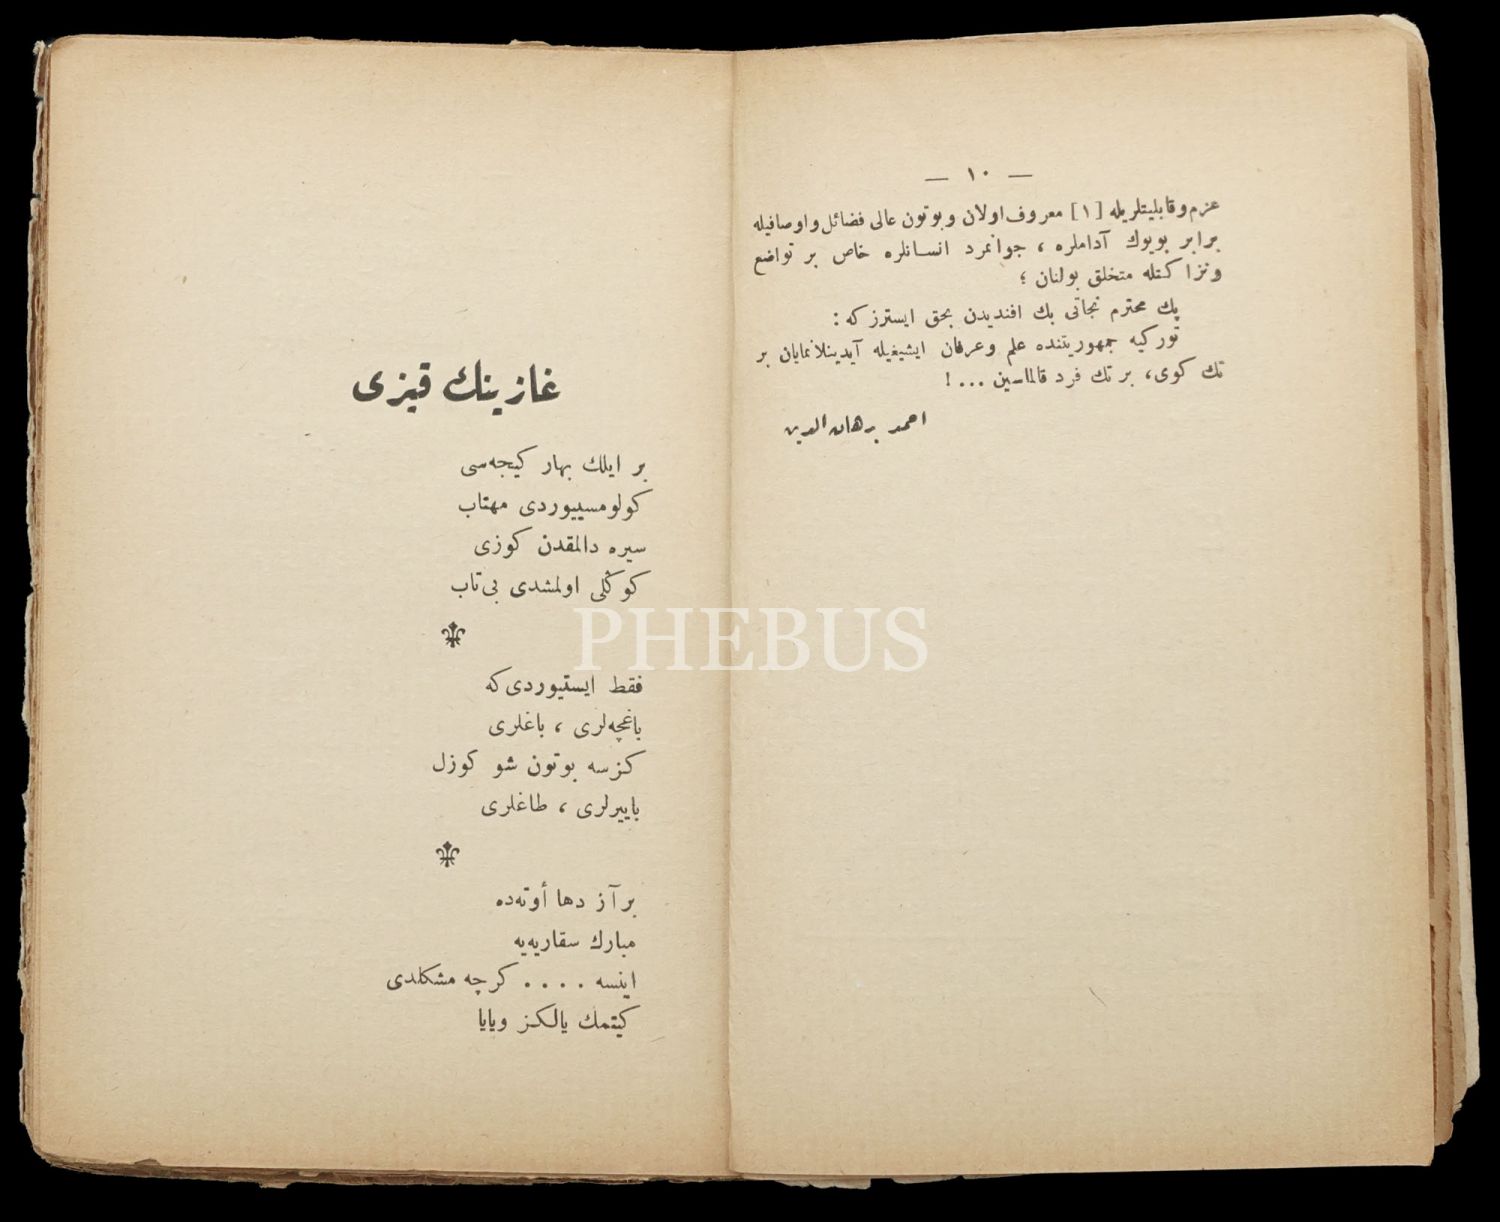 — ١٠ —
عزم و قابلیتلریله [١] معروف اولان و بوتون عالی فضائل و اوصافیله
برابر بویوك آداملره ، جوانمرد انسانلره خاص بر تواضع
و نزاكتله متخلق بولنان ؛
پك محترم نجاتی بك افندیدن بحق ایسترز كه :
توركیه جمهوریتنده علم و عرفان ایشیغیله آیدینلانمایان بر
تك كوی، بر تك فرد قالماسین ... !
احمد برهان الدین
غازینك قیزی
بر ایلك بهار كیجه‌سی
كولومسییوردی مهتاب
سیره دالمقدن كوزی
كوڭلی اولمشدی بی‌تاب
فقط ایستیوردی كه
باغچه‌لری ، باغلری
كزسه بوتون شو كوزل
باییرلری ، طاغلری
بر آز دها أوته‌ده
مبارك سقاریه‌یه
اینسه . . . . كرچه مشكلدی
كیتمك یالكز ویایا
PHEBUS